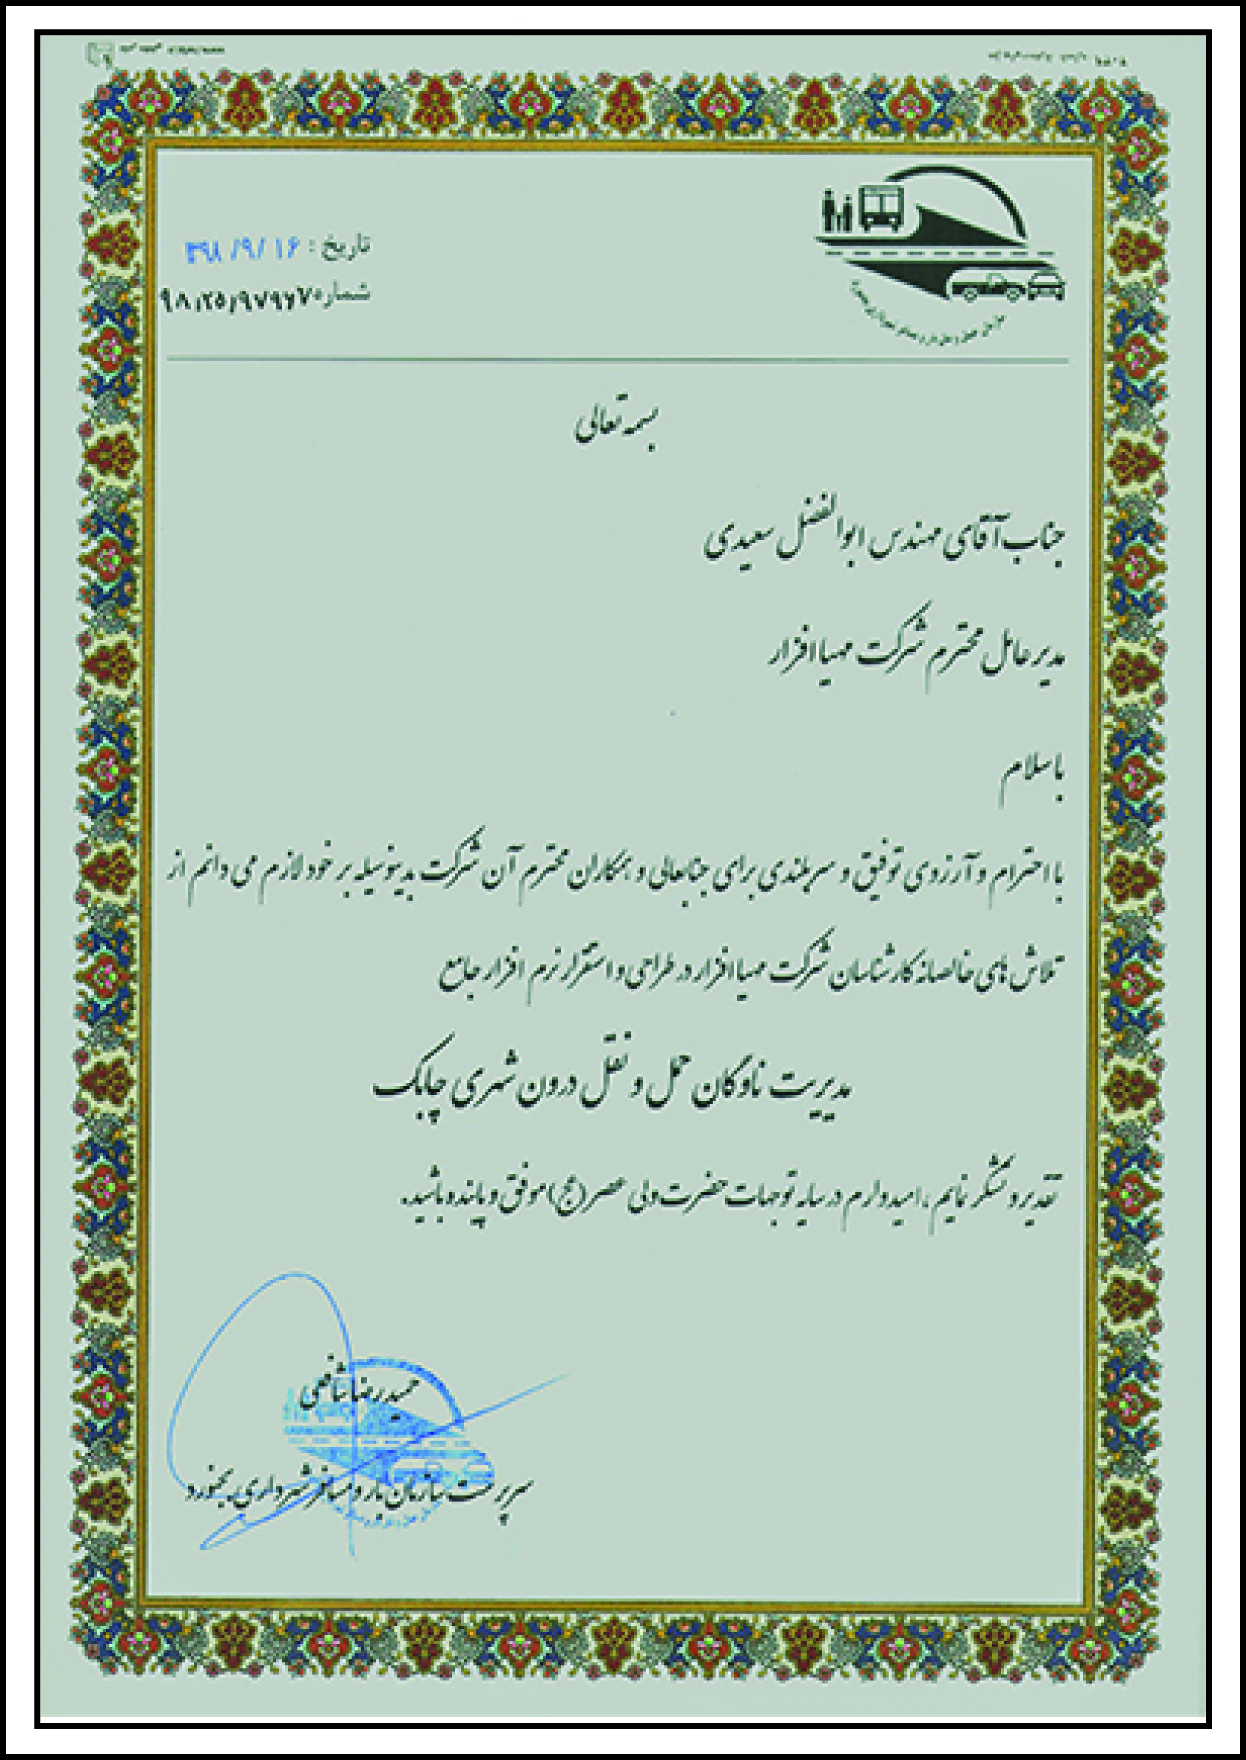 تاریخ : ۳۹۸/۹/۱۶
شماره ۹۸/۲۵/۹۷۹۶۷
بسمه تعالی
جناب آقای مهندس ابوالفضل سعیدی
مدیر عامل محترم شرکت مهیا افزار
با سلام
با احترام و آرزوی توفیق و سربلندی برای جنابعالی و همکاران محترم آن شرکت بدینوسیله بر خود لازم می دانم از
تلاش های خالصانه کارشناسان شرکت مهیا افزار در طراحی و استقرار نرم افزار جامع
مدیریت ناوگان حمل و نقل درون شهری چابک
تقدیر و تشکر نمایم ، امیدوارم در سایه توجهات حضرت ولی عصر (عج) موفق و پاینده باشید.
حمیدرضا شافعی
سرپرست سازمان بار و مسافر شهرداری بجنورد